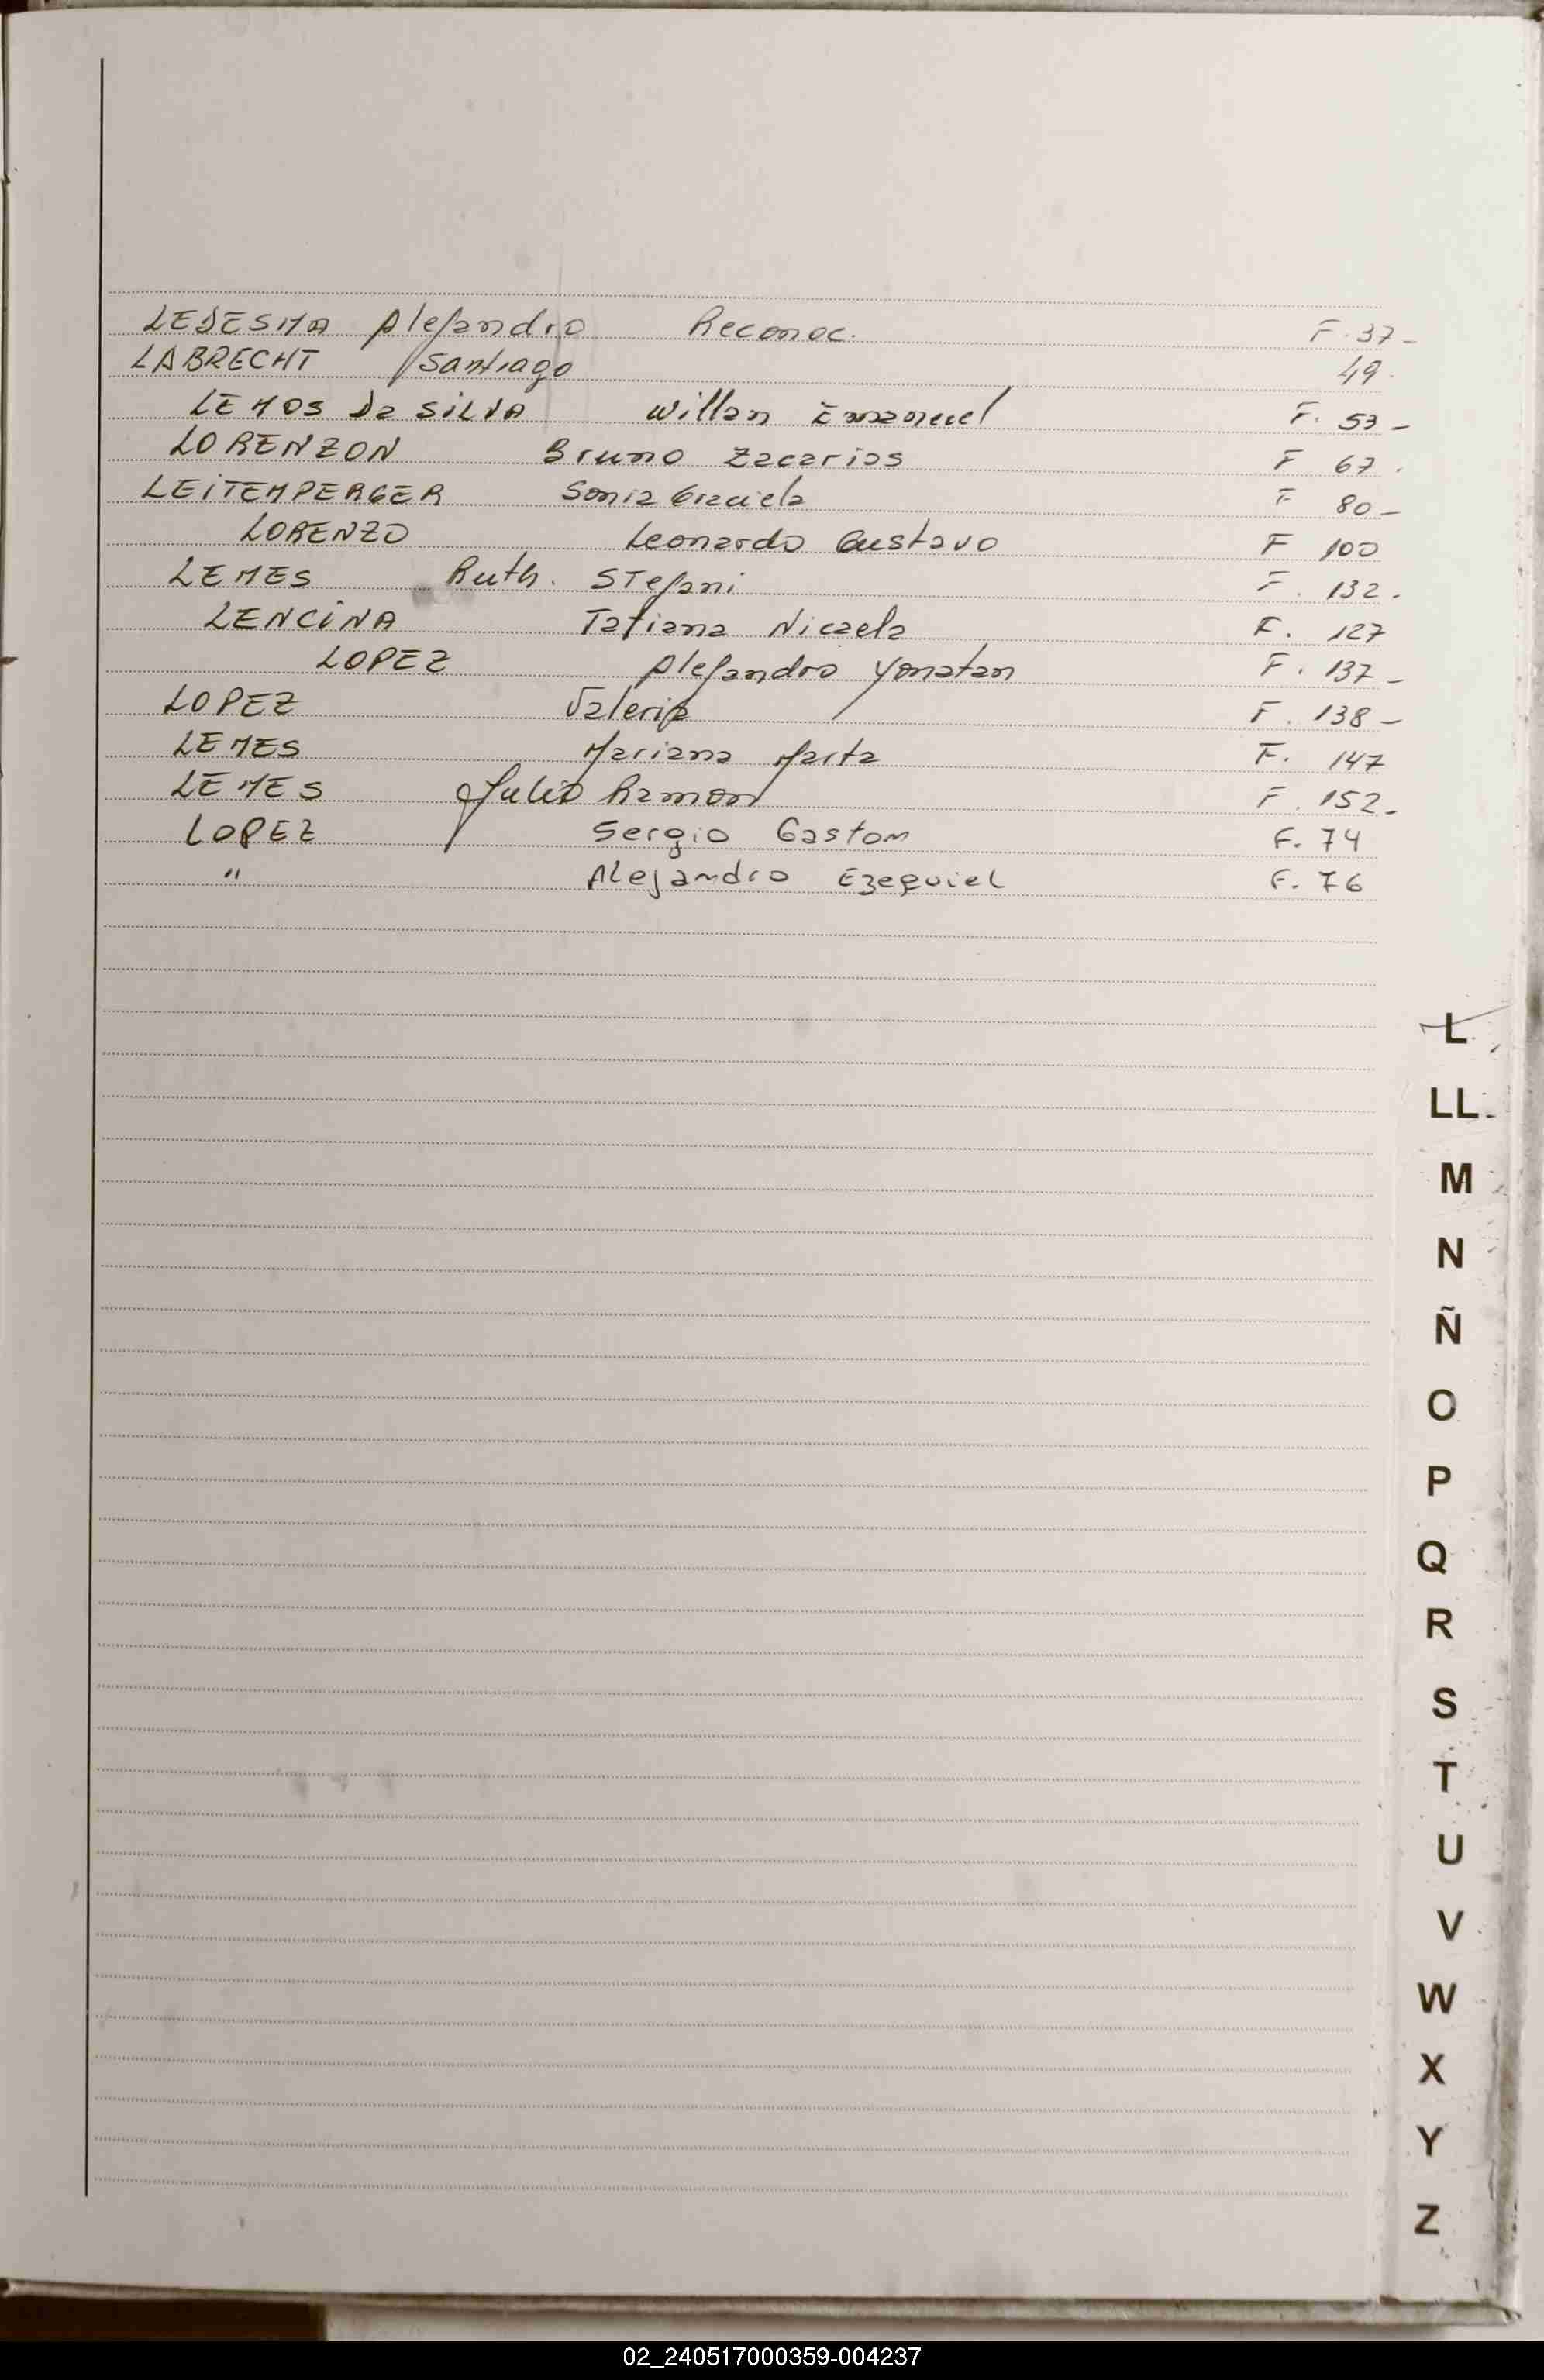 LEDESMA Alejandro Reconoc. F. 37-
LABRECHT Santiago 49.
LEMOS Da SILVA Willan Emanuel F. 53-
LORENZON Bruno Zacarias F 67.
LEITEMPERGER Sonia Graciela F 80-
LORENZO Leonardo Gustavo F 100
LEMES Ruth. STefani F. 132.
LENCINA Tatiana Nicaela F. 127
LOPEZ Alejandro Yonatan F. 137-
LOPEZ Valeria F. 138-
LEMES Mariana Marta F. 147
LEMES Julio Ramon F. 152-
LOPEZ Sergio Gaston F. 74
" Alejandro Ezequiel F. 76
L
LL
M
N
Ñ
O
P
Q
R
S
T
U
V
W
X
Y
Z
02_240517000359-004237